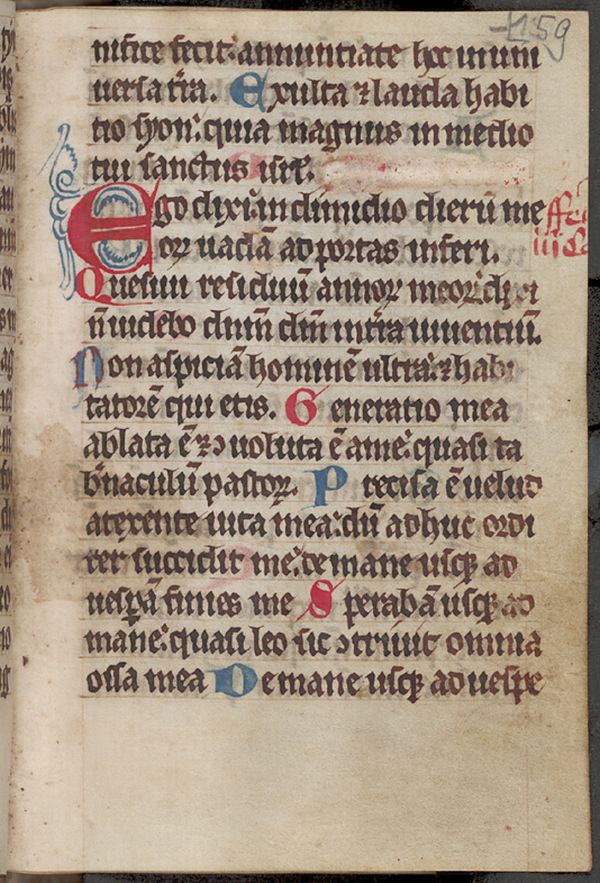 159
nifice fecit: annuntiate hoc in uni
uersa t̄ra. Exulta ⁊ lauda habi
tio syon: quia magnus in medio
tui sanctus isrł.
Ego dixi: in dimidio dierū me
oꝝ uadā ad portas inferi.
Quesiui residuū annoꝝ meoꝝ: dixi
n̄ uidebo dnm̄ dm̄ in t̄ra uiuentiū.
Non aspiciā hominē ultra: ⁊ habi
tatorē quietis. Generatio mea
ablata ē ⁊ ↄuoluta ē a me: quasi ta
b̄naculū pastoꝝ. Precisa ē uelud
a texente uita mea: dū adhuc ordi
rer succidit me: de mane usqꝫ ad
uesꝑā finies me Sperabā usqꝫ ad
mane: quasi leo sic ↄtriuit omnia
ossa mea De mane usqꝫ ad uespe